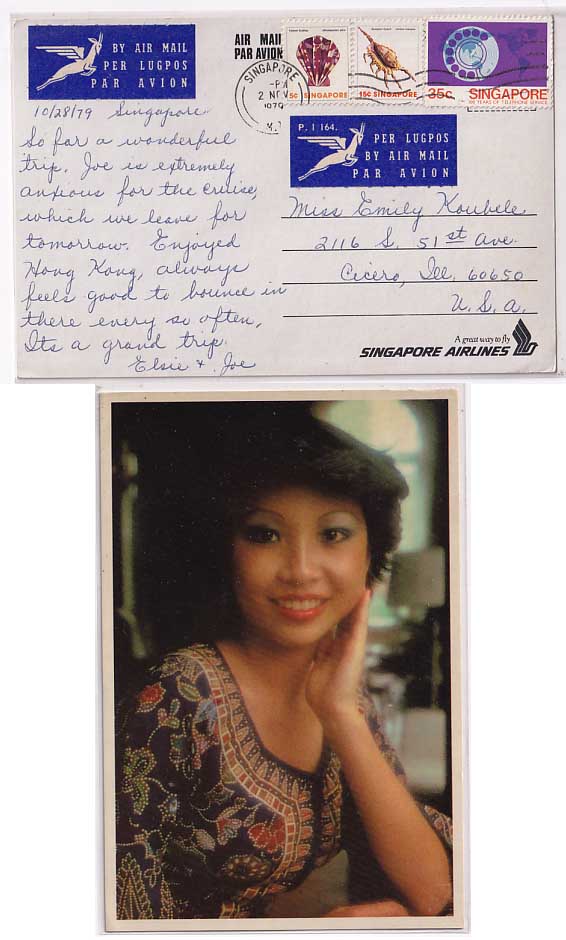 BY AIR MAIL
PER LUGPOS
PAR AVION
AIR MAIL
PAR AVION
SINGAPORE
2 NOV
1979
5c SINGAPORE
15c SINGAPORE
35c. SINGAPORE
100 YEARS OF TELEPHONE SERVICE
P. 1 164.
PER LUGPOS
BY AIR MAIL
PAR AVION
10/28/79 Singapore
So far a wonderful
trip. Joe is extremely
anxious for the cruise,
which we leave for
tomorrow. Enjoyed
Hong Kong, always
feels good to bounce in
there every so often,
Its a grand trip.
Elsie & Joe
Miss Emily Koubele
2116 S. 51st Ave.
Cicero, Ill. 60650
U.S.A.
A great way to fly
SINGAPORE AIRLINES